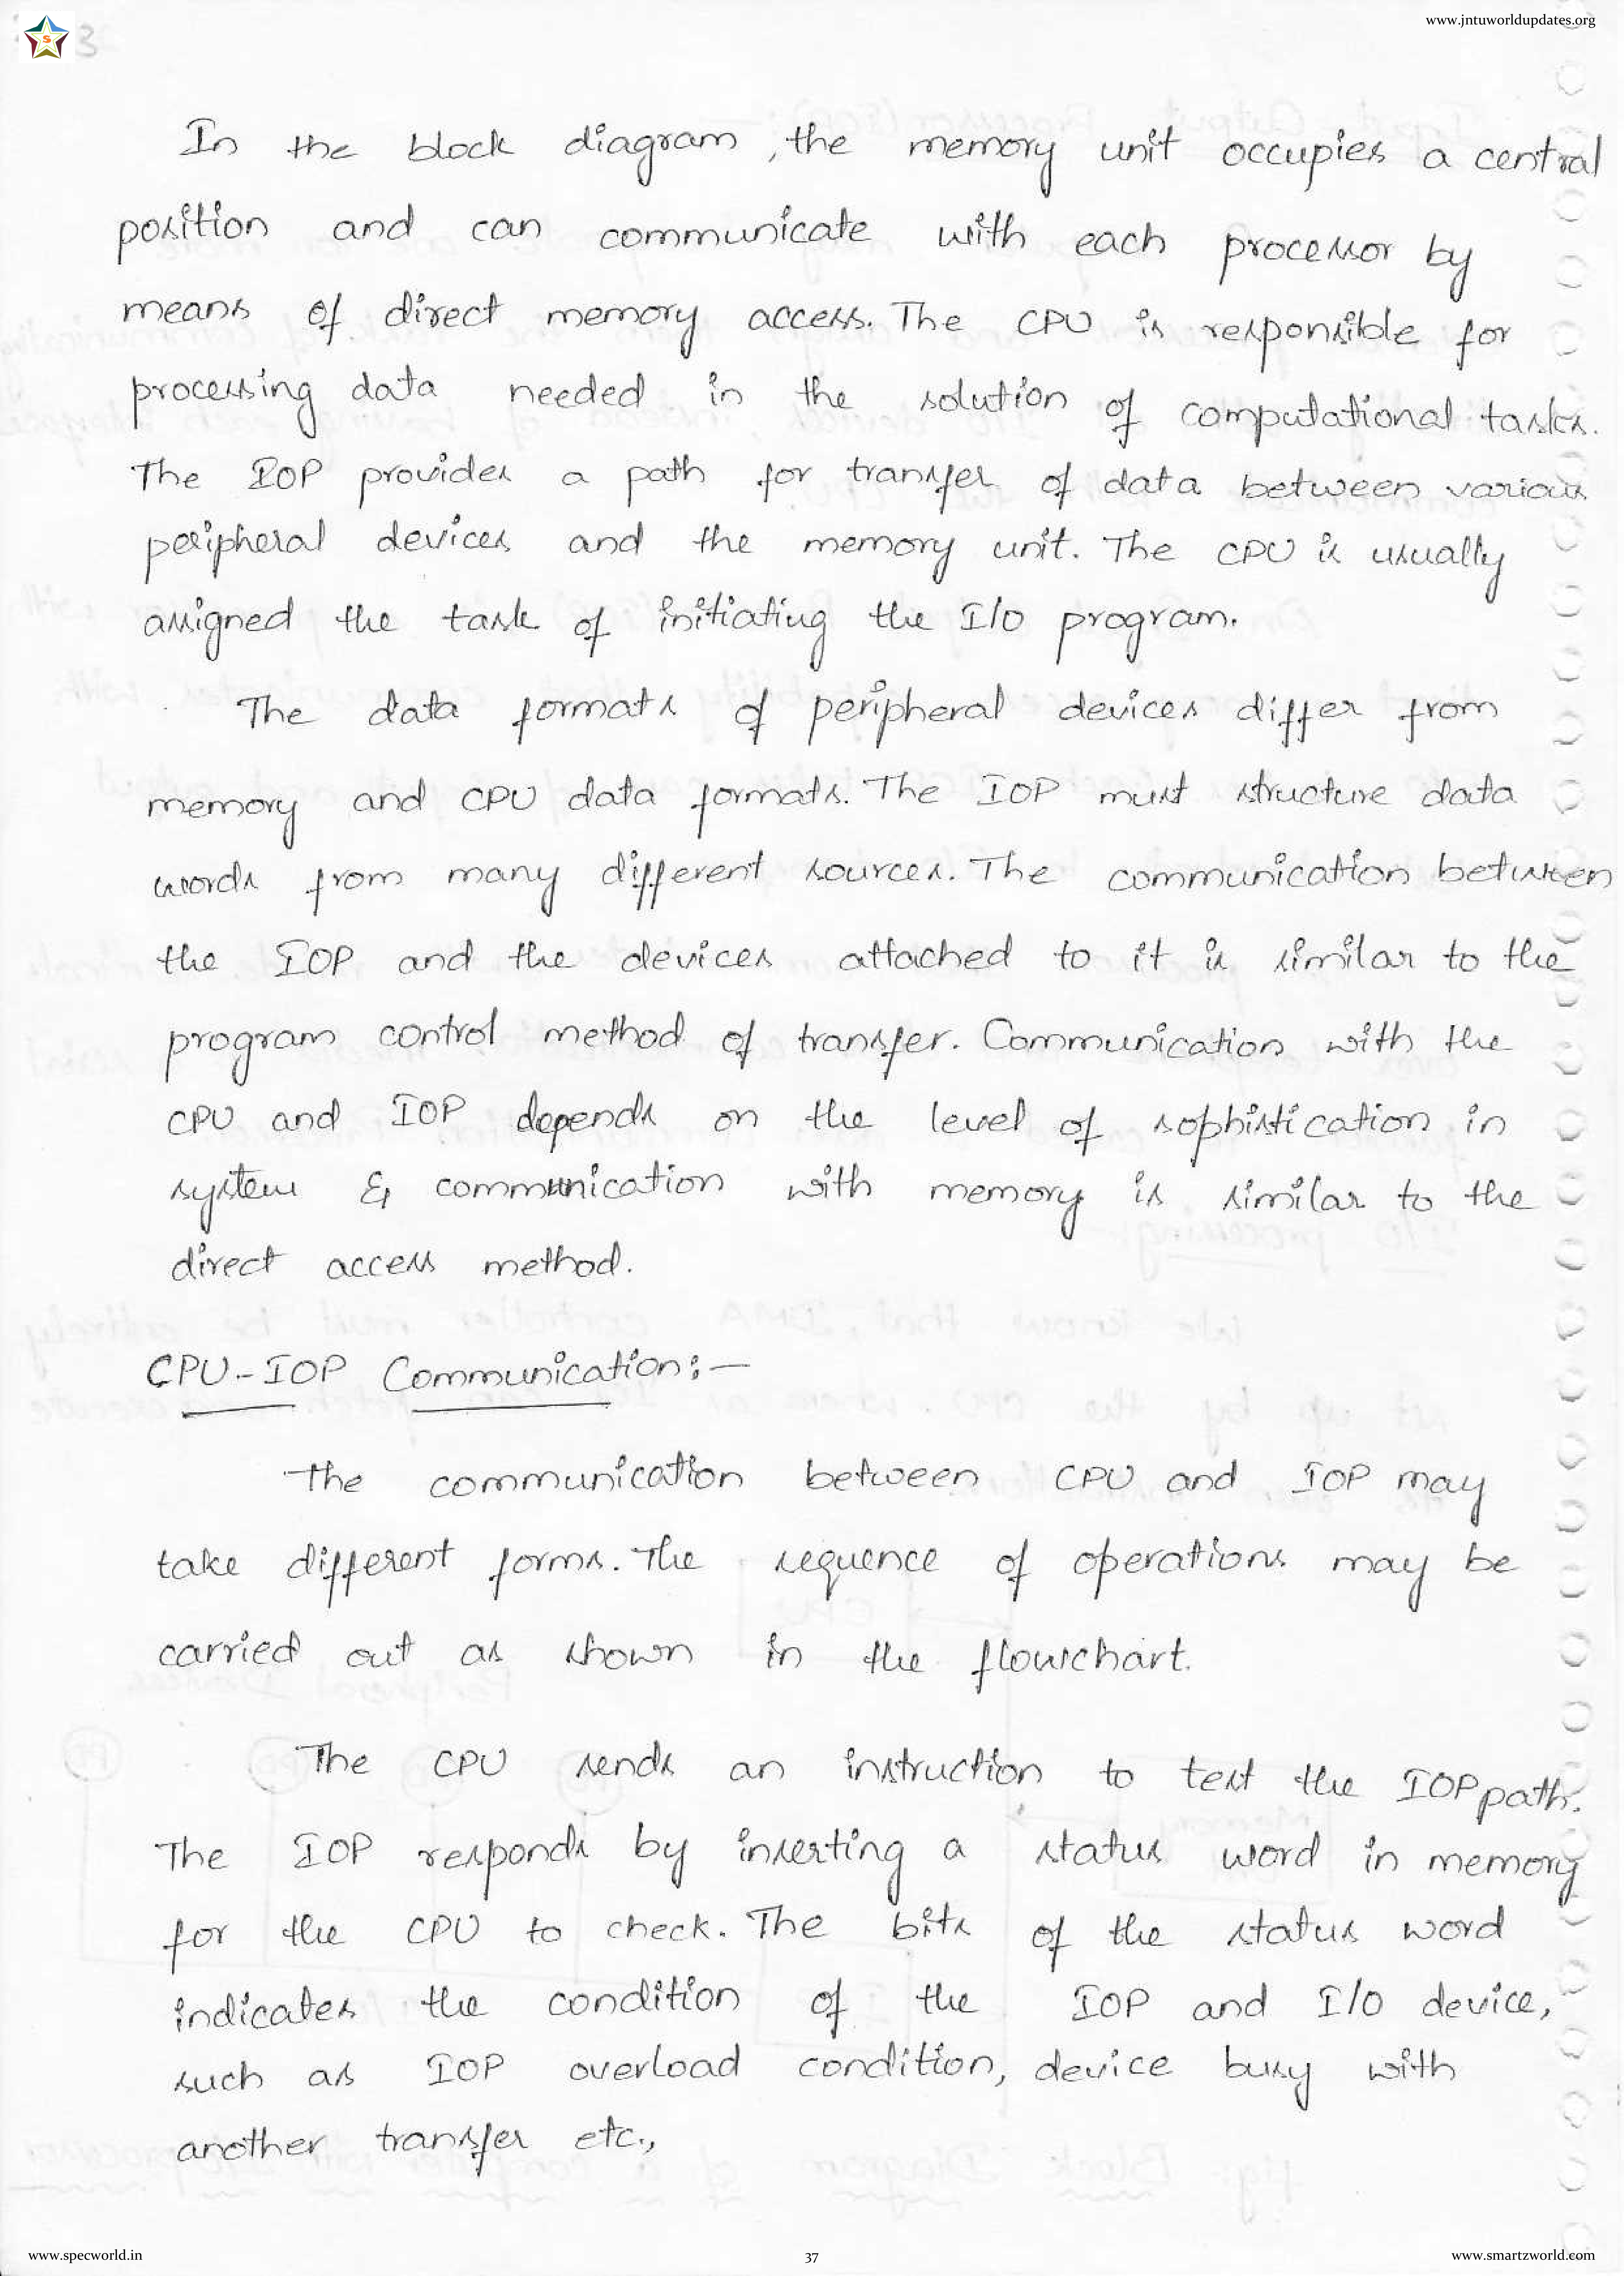 www.jntuworldupdates.org
S
In the block diagram, the memory unit occupies a central
position and can communicate with each processor by
means of direct memory access. The CPU is responsible for
processing data needed in the solution of computational tasks.
The IOP provides a path for transfer of data between various
peripheral devices and the memory unit. The CPU is usually
assigned the task of initiating the I/O program.
The data formats of peripheral devices differ from
memory and CPU data formats. The IOP must structure data
words from many different sources. The communication between
the IOP and the devices attached to it is similar to the
program control method of transfer. Communication with the
CPU and IOP depends on the level of sophistication in
system & communication with memory is similar to the
direct access method.
CPU-IOP Communication:-
The communication between CPU and IOP may
take different forms. The sequence of operations may be
carried out as shown in the flowchart.
The CPU sends an instruction to test the IOP path.
The IOP responds by inserting a status word in memory
for the CPU to check. The bits of the status word
indicates the condition of the IOP and I/O device,
such as IOP overload condition, device busy with
another transfer etc.,
www.specworld.in
37
www.smartzworld.com